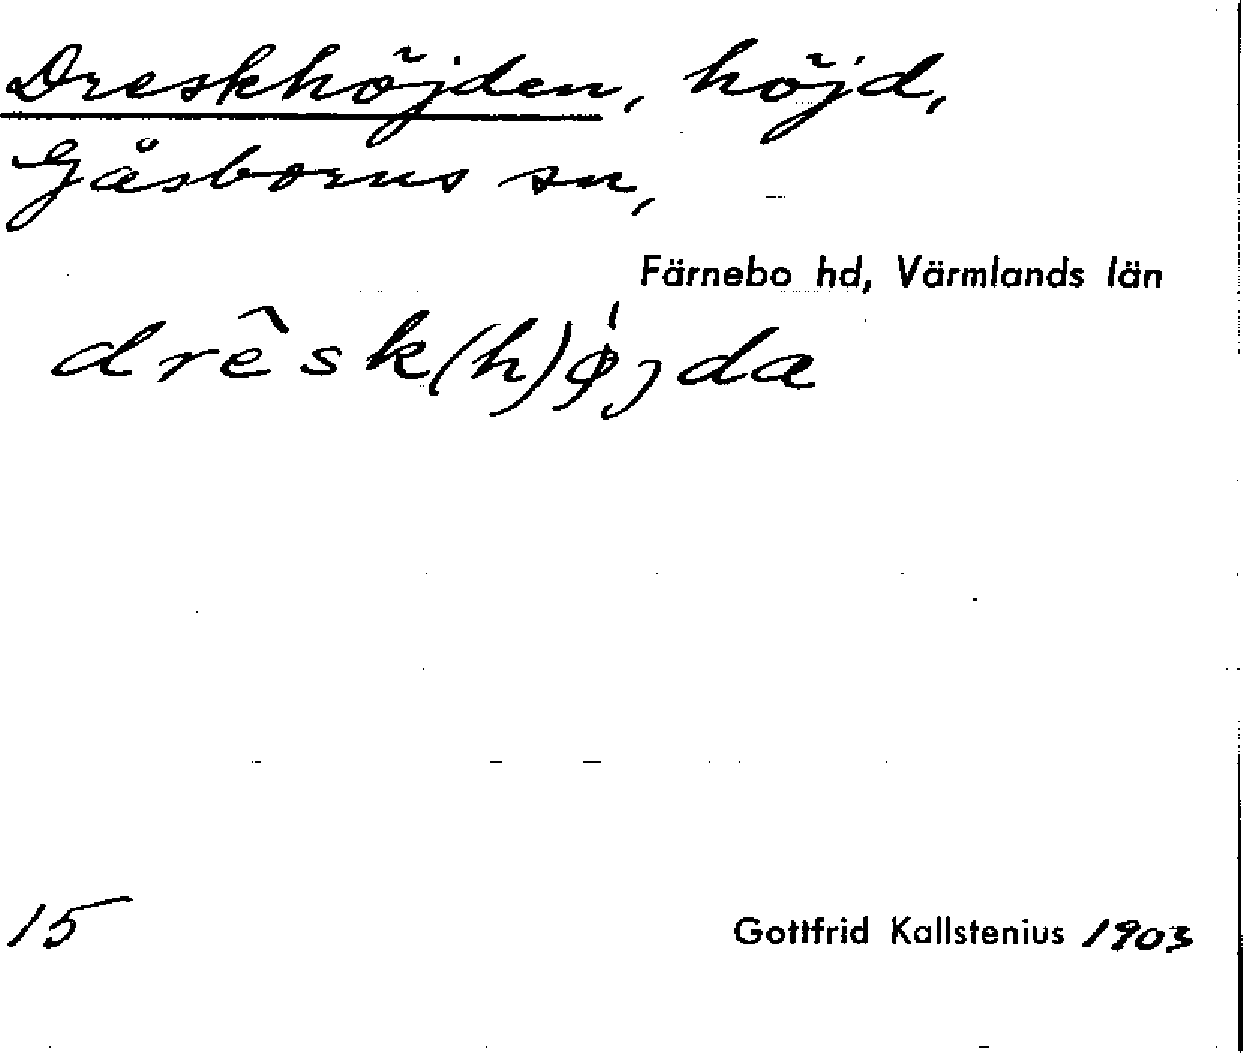 Dreskhöjden, höjd,
Gåsborns sn,
Färnebo hd, Värmlands län
drêsk(h)ǿjda
15
Gottfrid Kallstenius 1903